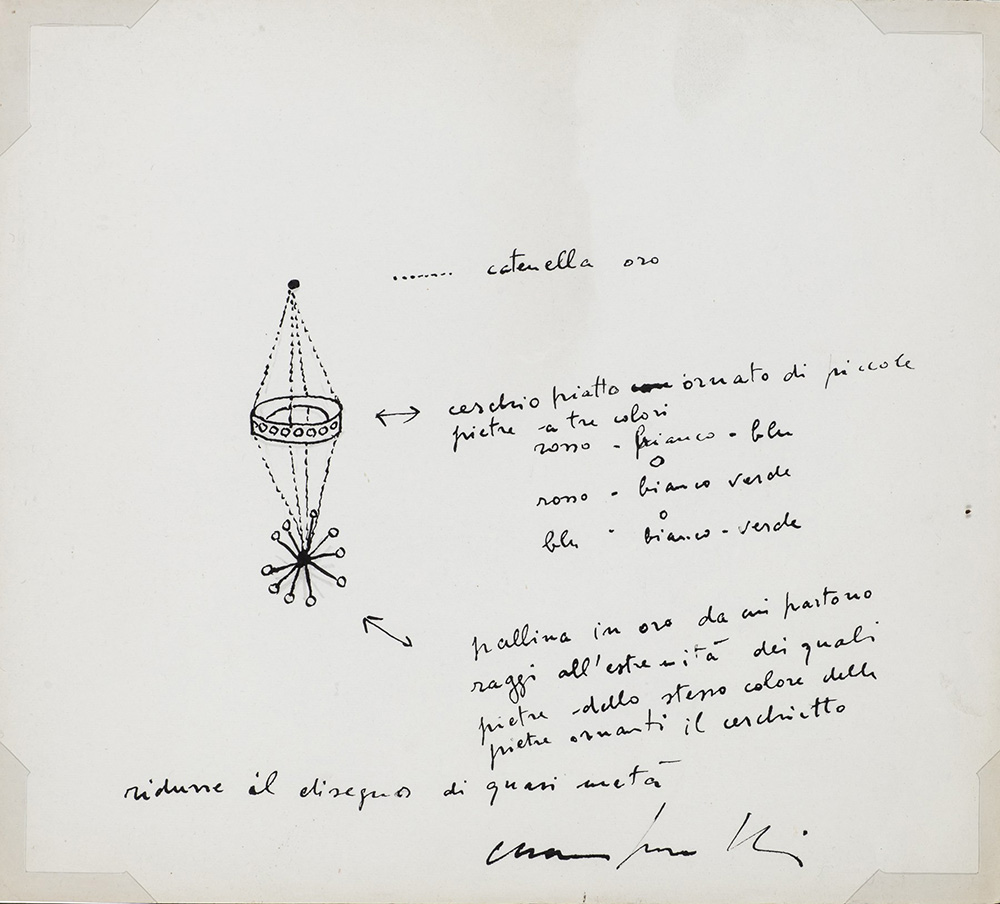 ........ catenella oro
cerchio piatto ornato di piccole
pietre a tre colori
rosso - bianco - blu
rosso - bianco verde
blu - bianco - verde
pallina in oro da cui partono
raggi all'estremità dei quali
pietre dello stesso colore delle
pietre ornanti il cerchietto
ridurre il disegno di quasi metà